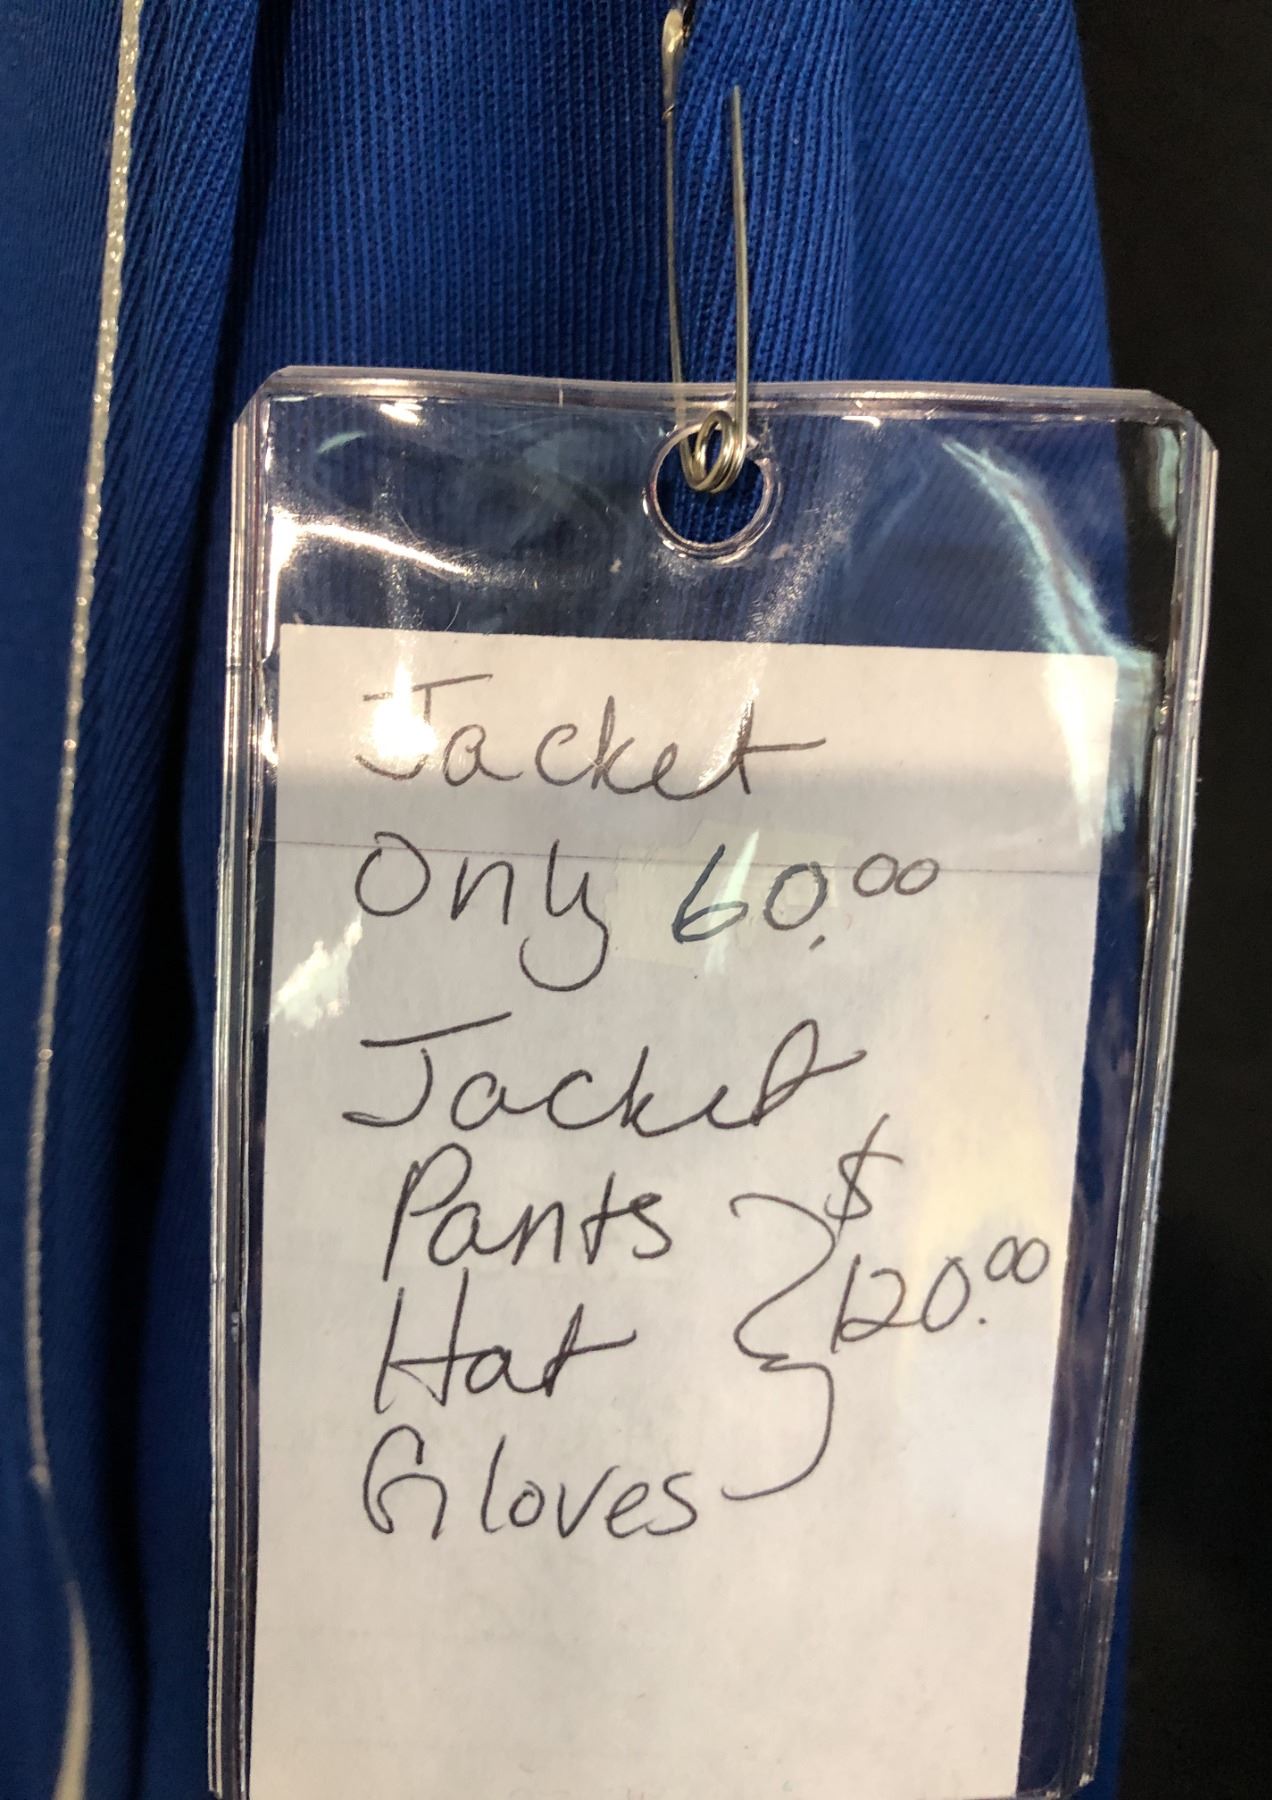 Jacket
Only 60.00
Jacket
Pants $
Hat 120.00
Gloves